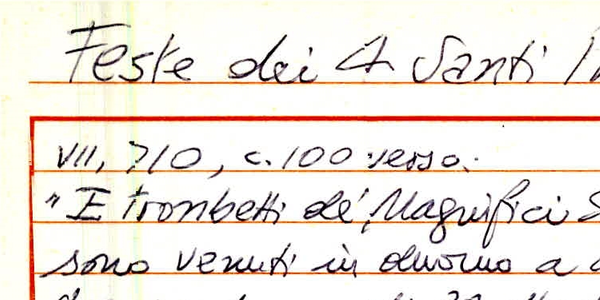 Feste dei 4 Santi
VII, 710, c. 100 verso.
"E trombetti de' Magnifici S
sono venuti in duomo a